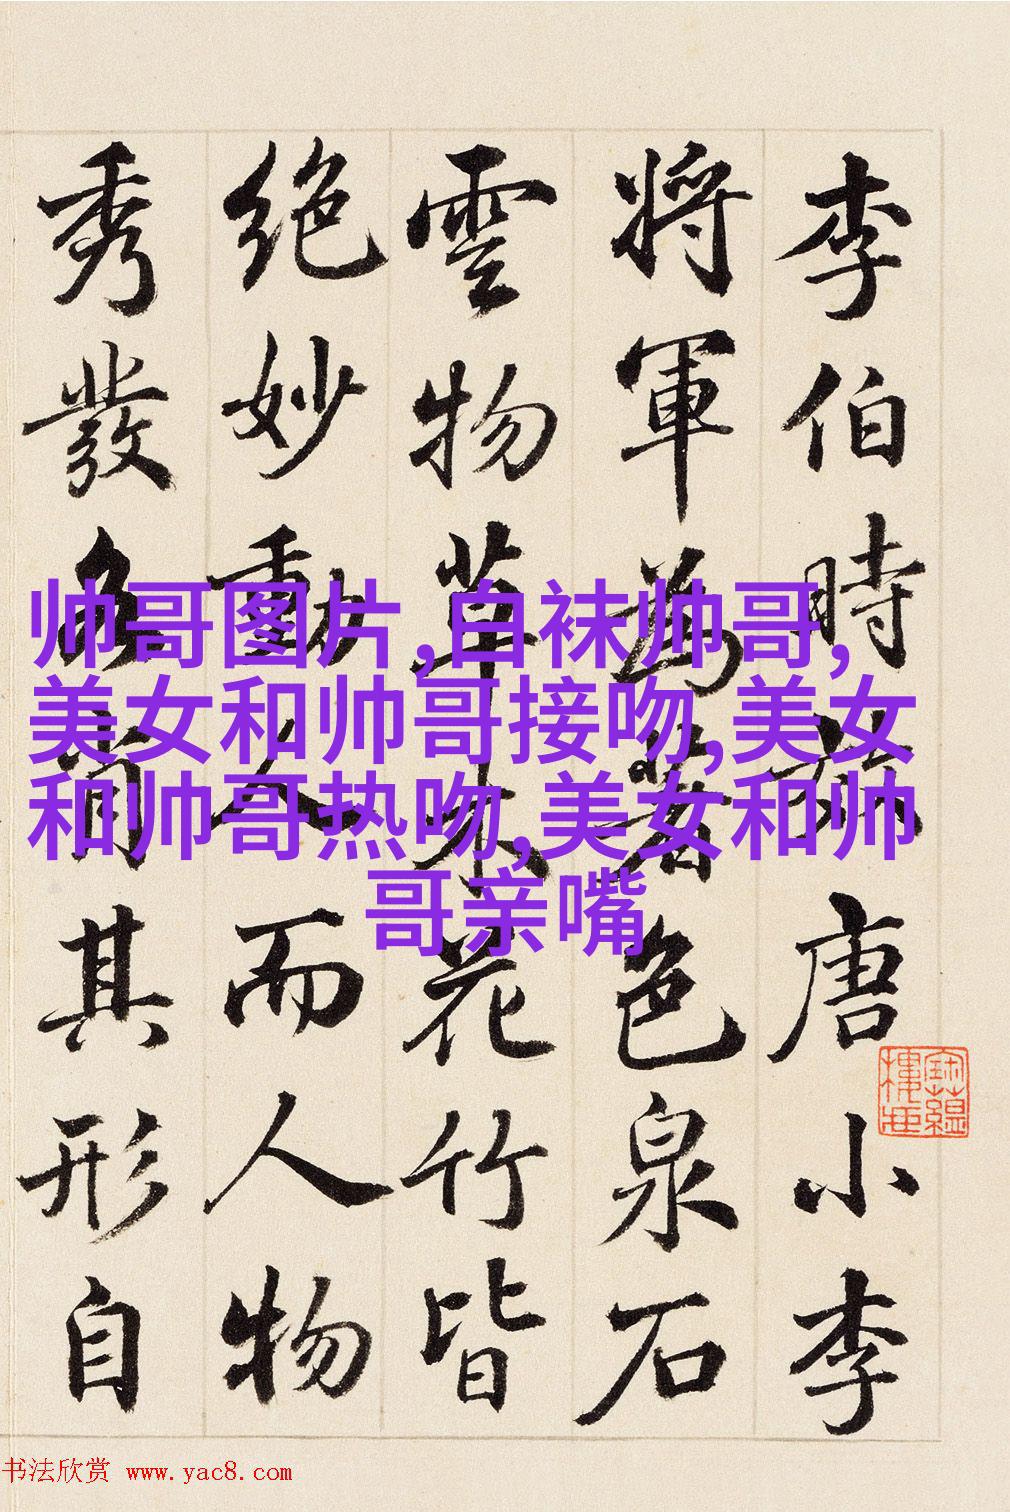 李伯時唐小李
將軍為著色泉石
雲物草木花竹皆
絶妙動人而人物
秀發各肖其形自
帅哥图片,白袜帅哥,
美女和帅哥接吻,美女
和帅哥热吻,美女和帅
哥亲嘴
书法欣赏 www.yac8.com